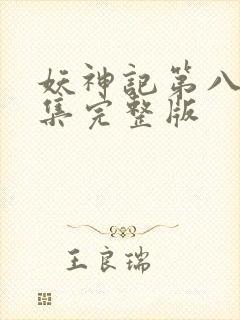 妖神記第八
集完整版
王良瑞